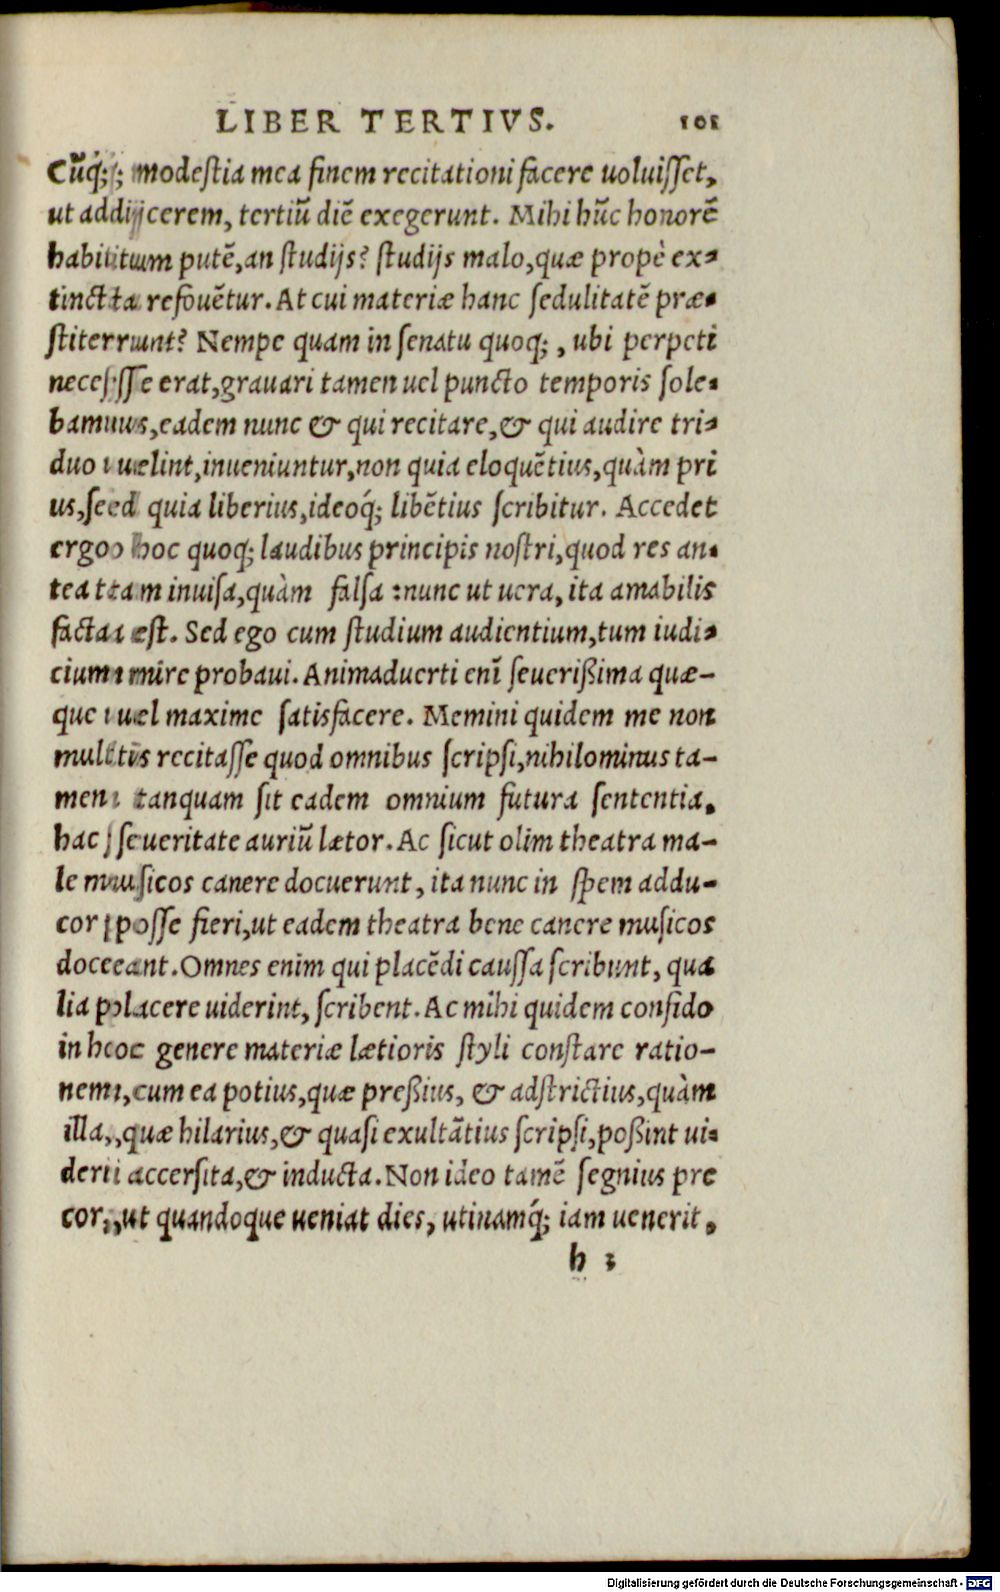 LIBER TERTIVS. 101
Cūq́; modestia mea finem recitationi facere uoluisset,
ut addijcerem, tertiū diē exegerunt. Mihi hūc honorē
habitum putē, an studijs? studijs malo, quæ propè ex-
tincta refouētur. At cui materiæ hanc sedulitatē præ-
stiterunt? Nempe quam in senatu quoq;, ubi perpeti
necesse erat, grauari tamen uel puncto temporis sole-
bamus, eadem nunc & qui recitare, & qui audire tri-
duo uelint, inueniuntur, non quia eloquētius, quàm pri
us, sed quia liberius, ideoq́; libētius scribitur. Accedet
ergo hoc quoq; laudibus principis nostri, quod res an-
tea tam inuisa, quàm falsa: nunc ut uera, ita amabilis
facta est. Sed ego cum studium audientium, tum iudi-
cium mire probaui. Animaduerti enī seuerißima quæ-
que uel maxime satisfacere. Memini quidem me non
multis recitasse quod omnibus scripsi, nihilominus ta-
men tanquam sit eadem omnium futura sententia,
hac seueritate auriū lætor. Ac sicut olim theatra ma-
le musicos canere docuerunt, ita nunc in spem addu-
cor posse fieri, ut eadem theatra bene canere musicos
doceant. Omnes enim qui placēdi caussa scribunt, qua
lia placere uiderint, scribent. Ac mihi quidem confido
in hoc genere materiæ lætioris styli constare ratio-
nem, cum ea potius, quæ preßius, & adstrictius, quàm
illa, quæ hilarius, & quasi exultātius scripsi, poßint ui-
deri accersita, & inducta. Non ideo tamē segnius pre
cor, ut quandoque ueniat dies, utinamq́; iam uenerit,
h 3
Digitalisierung gefördert durch die Deutsche Forschungsgemeinschaft - DFG